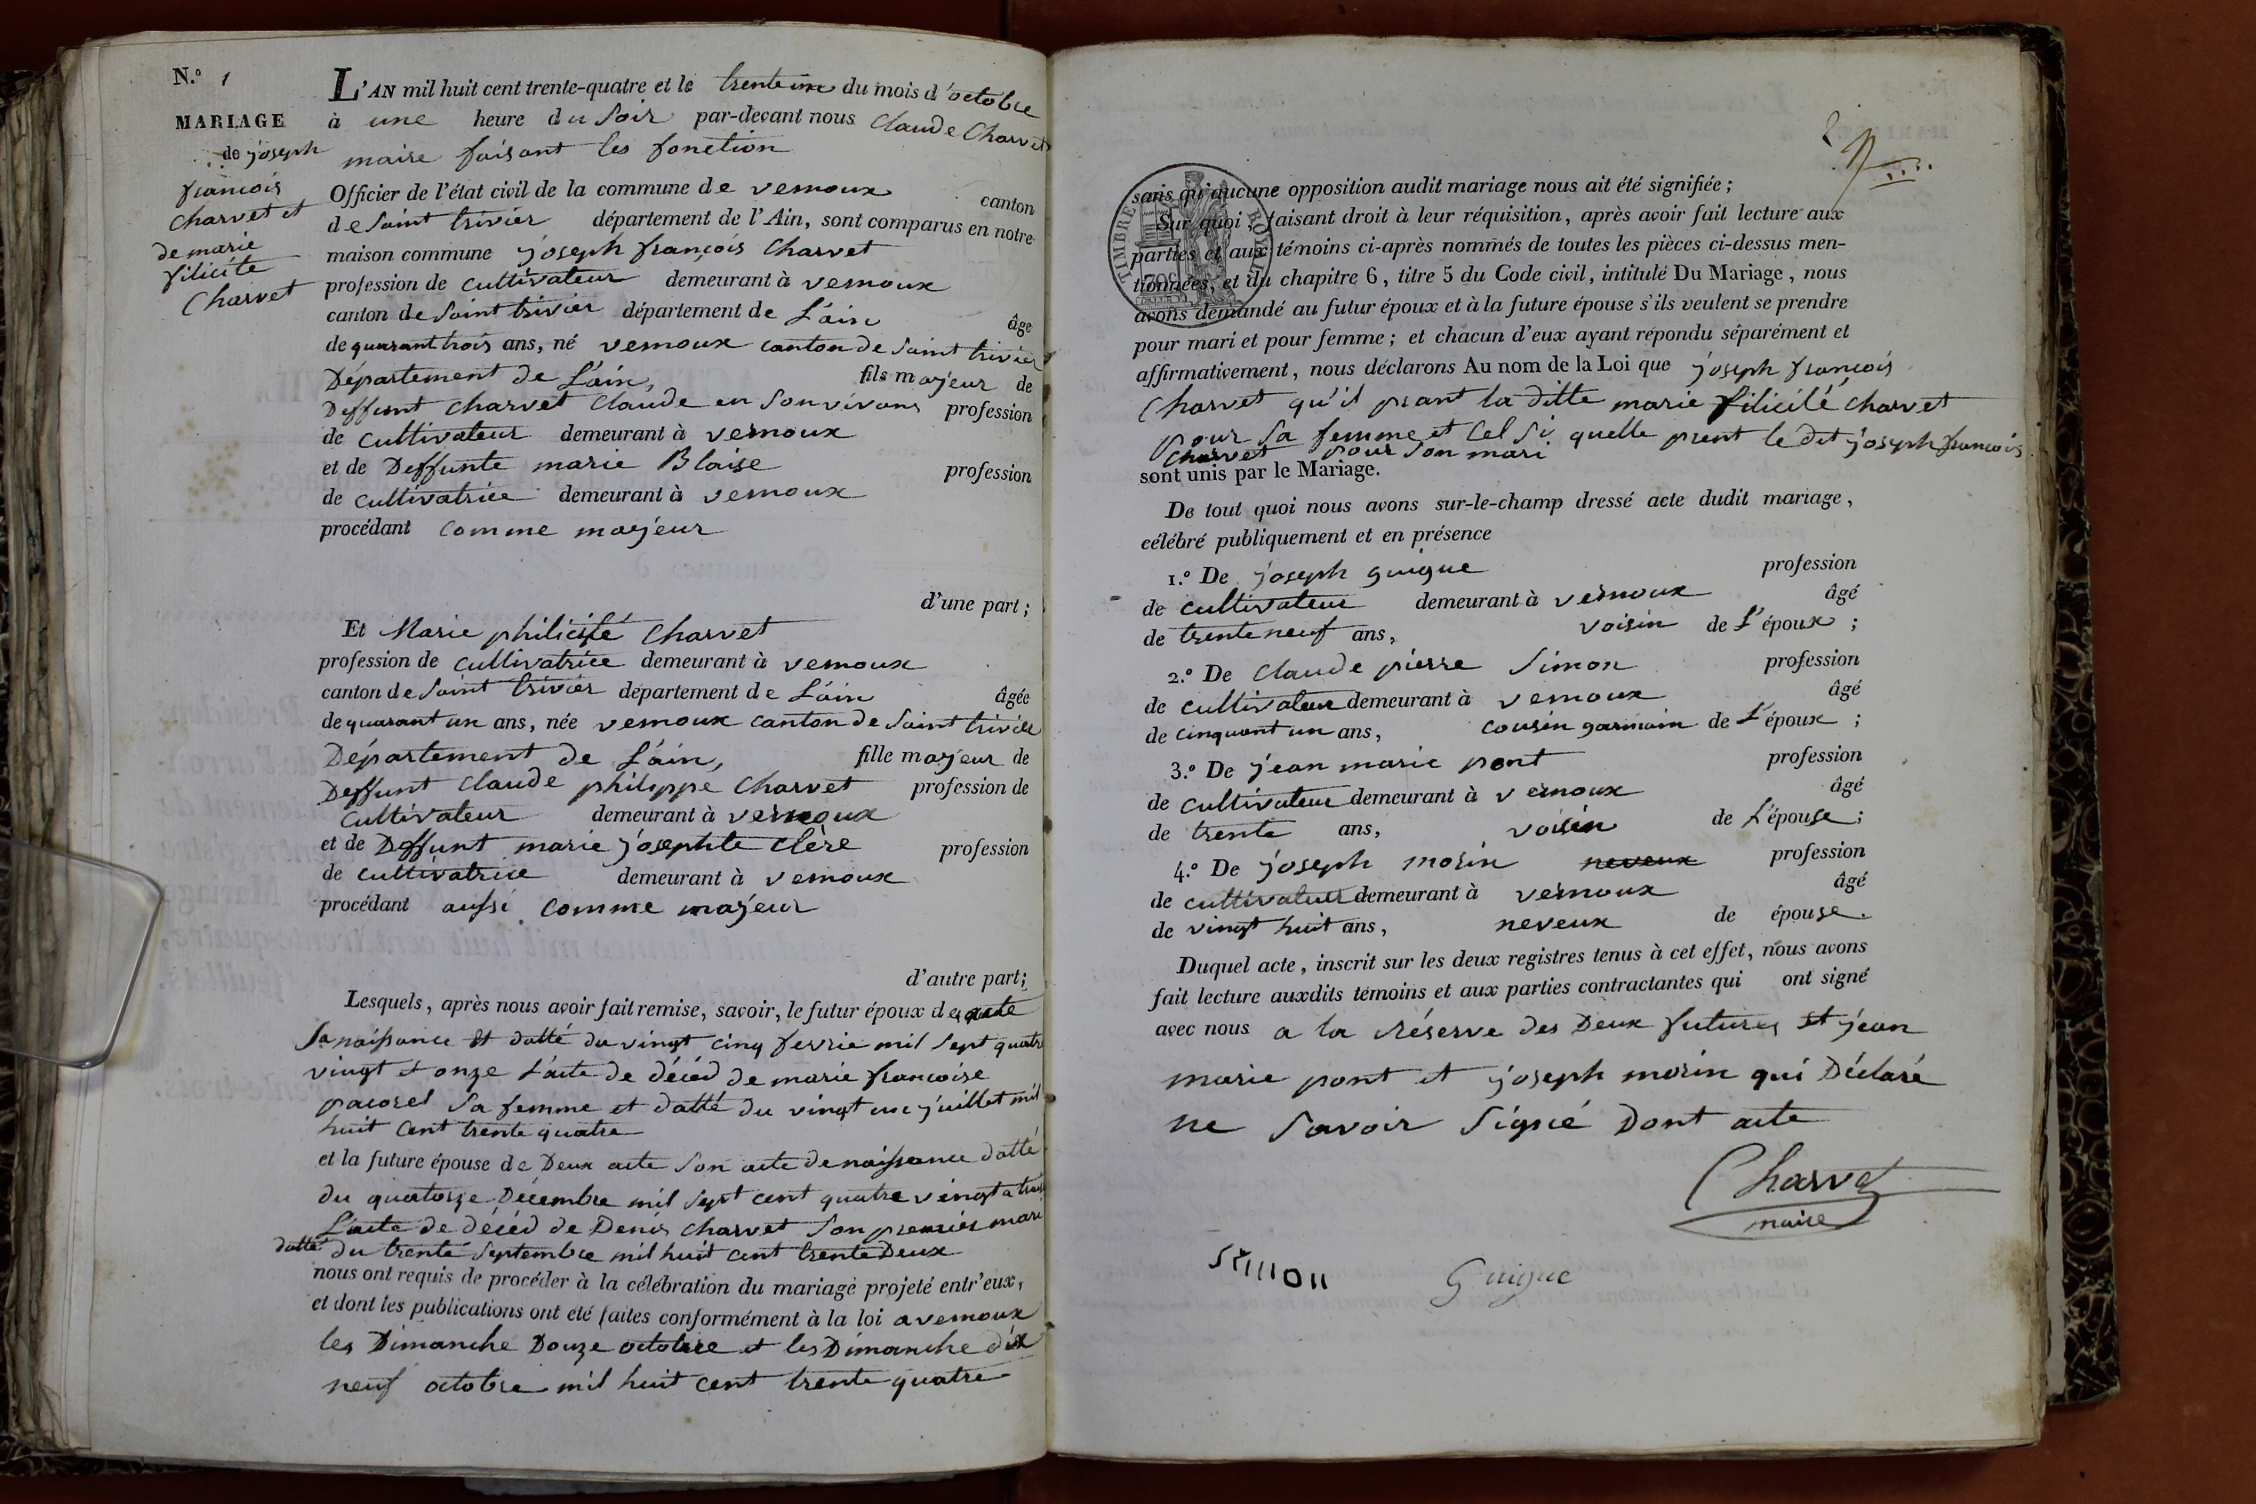 N.º 1
MARIAGE
de joseph
francois
Charvet et
de marie
filicite
Charvet
L'AN mil huit cent trente-quatre et le trente un du mois d'octobre
à une heure du Soir par-devant nous Claude Charvet
maire faisant les fonction
Officier de l'état civil de la commune de vernoux canton
de Saint trivier département de l'Ain, sont comparus en notre
maison commune joseph françois Charvet
profession de cultivateur demeurant à vernoux
canton de Saint trivier département de L'ain âge
de quarant trois ans, né vernoux canton de Saint trivier
Département de L'ain, fils majeur de
Deffunt Charvet Claude en Son vivans profession
de cultivateur demeurant à vernoux
et de Deffunte marie Blaise profession
de cultivatrice demeurant à vernoux
procédant comme majeur
d'une part;
Et Marie philicité Charvet
profession de cultivatrice demeurant à vernoux
canton de Saint trivier département de L'ain âgée
de quarant un ans, née vernoux canton de Saint trivier
Département de L'ain, fille majeur de
Deffunt Claude philippe Charvet profession de
cultivateur demeurant à vernoux
et de Deffunt marie josephte clère profession
de cultivatrice demeurant à vernoux
procédant aussi comme majeur
d'autre part;
Lesquels, après nous avoir fait remise, savoir, le futur époux de acte
Sa naissance Et datté du vingt cinq fevrie mil Sept quatre
vingt et onze L'acte de décéd de marie francoise
pacorel Sa femme et datté du vingt un juillet mil
huit Cent trente quatre
et la future épouse de Deux acte Son acte de naissance datté
du quatorze Décembre mil Sept cent quatre vingt a trois
L'acte de décéd de Denis Charvet Son premier mari
datté du trente Septembre mil huit cent trente Deux
nous ont requis de procéder à la célébration du mariage projeté entr'eux,
et dont les publications ont été faites conformément à la loi a vernoux
les Dimanche Douze octobre et les Dimanche dix
neuf octobre mil huit cent trente quatre
2
TIMBRE ROYAL
sans qu'aucune opposition audit mariage nous ait été signifiée;
Sur quoi, faisant droit à leur réquisition, après avoir fait lecture aux
parties et aux témoins ci-après nommés de toutes les pièces ci-dessus men-
tionnées, et du chapitre 6, titre 5 du Code civil, intitulé Du Mariage, nous
avons demandé au futur époux et à la future épouse s'ils veulent se prendre
pour mari et pour femme; et chacun d'eux ayant répondu séparément et
affirmativement, nous déclarons Au nom de la Loi que joseph françois
Charvet qu'il prant la ditte marie filicilé Charvet
pour Sa femme et Cel Si quelle prent le dit joseph francois
Charvet pour Son mari
sont unis par le Mariage.
De tout quoi nous avons sur-le-champ dressé acte dudit mariage,
célébré publiquement et en présence
1.º De joseph guigue profession
de cultivateur demeurant à vernoux âgé
de trente neuf ans, voisin de L'époux;
2.º De Claude pierre Simon profession
de cultivateur demeurant à vernoux âgé
de cinquant un ans, cousin garmain de L'époux;
3.º De jean marie pont profession
de cultivateur demeurant à vernoux âgé
de trente ans, voisin de L'épouse;
4.º De joseph morin neveux profession
de cultivateur demeurant à vernoux âgé
de vingt huit ans, neveux de épouse.
Duquel acte, inscrit sur les deux registres tenus à cet effet, nous avons
fait lecture auxdits témoins et aux parties contractantes qui ont signé
avec nous a la réserve des Deux futures et jean
marie pont et joseph morin qui Déclaré
ne Savoir Signé Dont acte
Charvet
maire
Simon Guigue